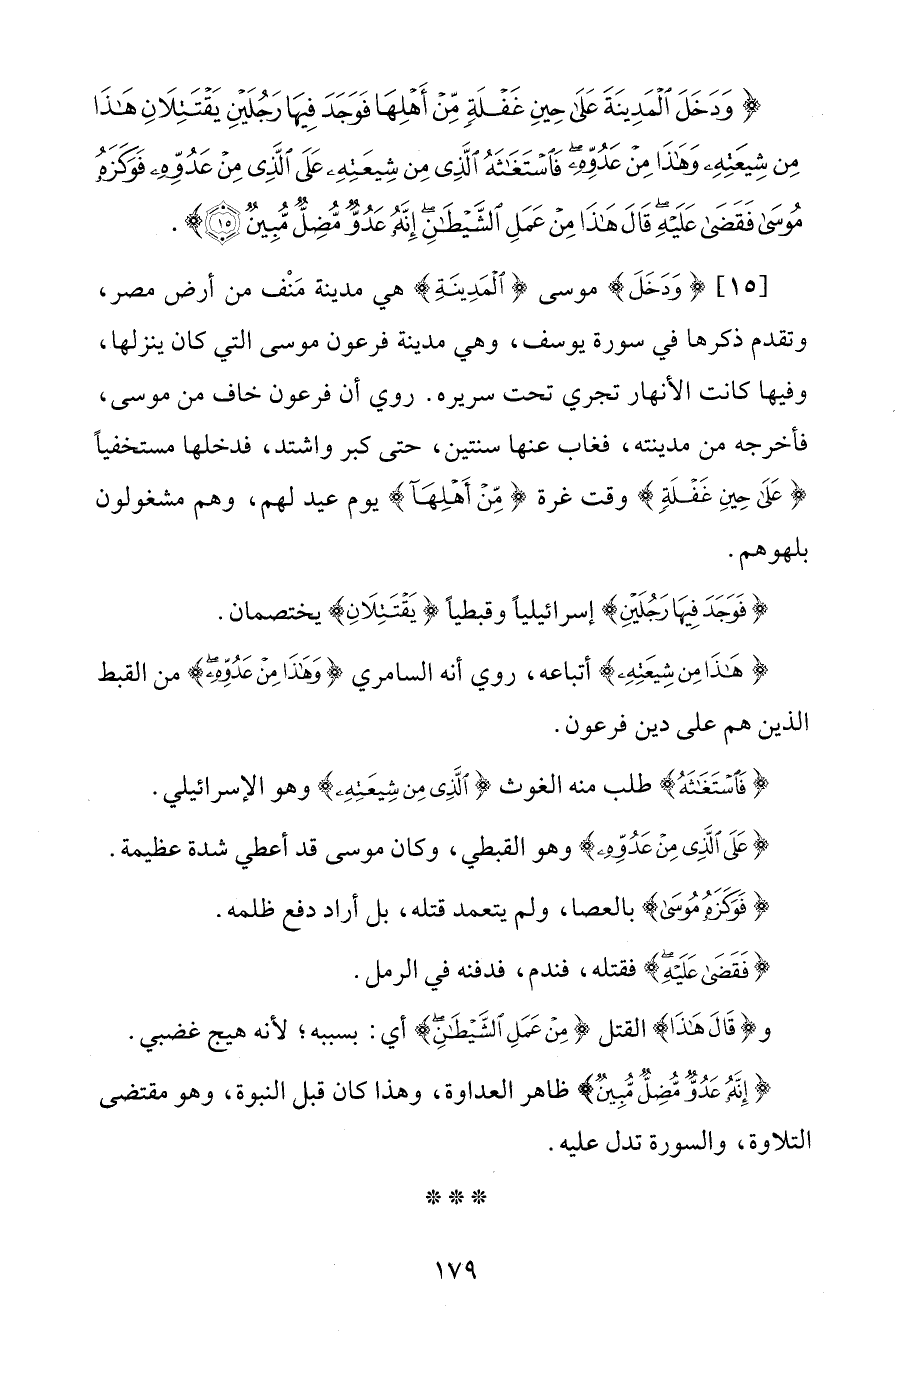 ﴿ وَدَخَلَ ٱلْمَدِينَةَ عَلَىٰ حِينِ غَفْلَةٍ مِّنْ أَهْلِهَا فَوَجَدَ فِيهَا رَجُلَيْنِ يَقْتَتِلَانِ هَٰذَا
مِن شِيعَتِهِۦ وَهَٰذَا مِنْ عَدُوِّهِۦ ۖ فَٱسْتَغَٰثَهُ ٱلَّذِى مِن شِيعَتِهِۦ عَلَى ٱلَّذِى مِنْ عَدُوِّهِۦ فَوَكَزَهُۥ
مُوسَىٰ فَقَضَىٰ عَلَيْهِ ۖ قَالَ هَٰذَا مِنْ عَمَلِ ٱلشَّيْطَٰنِ ۖ إِنَّهُۥ عَدُوٌّ مُّضِلٌّ مُّبِينٌ ١٥ ﴾ .
[١٥] ﴿ وَدَخَلَ ﴾ موسى ﴿ ٱلْمَدِينَةِ ﴾ هي مدينة مَنْف من أرض مصر،
وتقدم ذكرها في سورة يوسف، وهي مدينة فرعون موسى التي كان ينزلها،
وفيها كانت الأنهار تجري تحت سريره. روي أن فرعون خاف من موسى،
فأخرجه من مدينته، فغاب عنها سنتين، حتى كبر واشتد، فدخلها مستخفياً
﴿ عَلَىٰ حِينِ غَفْلَةٍ ﴾ وقت غرة ﴿ مِّنْ أَهْلِهَآ ﴾ يوم عيد لهم، وهم مشغولون
بلهوهم.
﴿ فَوَجَدَ فِيهَا رَجُلَيْنِ ﴾ إسرائيلياً وقبطياً ﴿ يَقْتَتِلَانِ ﴾ يختصمان.
﴿ هَٰذَا مِن شِيعَتِهِۦ ﴾ أتباعه، روي أنه السامري ﴿ وَهَٰذَا مِنْ عَدُوِّهِۦ ۖ ﴾ من القبط
الذين هم على دين فرعون.
﴿ فَٱسْتَغَٰثَهُ ﴾ طلب منه الغوث ﴿ ٱلَّذِى مِن شِيعَتِهِۦ ﴾ وهو الإسرائيلي.
﴿ عَلَى ٱلَّذِى مِنْ عَدُوِّهِۦ ﴾ وهو القبطي، وكان موسى قد أعطي شدة عظيمة.
﴿ فَوَكَزَهُۥ مُوسَىٰ ﴾ بالعصا، ولم يتعمد قتله، بل أراد دفع ظلمه.
﴿ فَقَضَىٰ عَلَيْهِ ۖ ﴾ فقتله، فندم، فدفنه في الرمل.
و﴿ قَالَ هَٰذَا ﴾ القتل ﴿ مِنْ عَمَلِ ٱلشَّيْطَٰنِ ۖ ﴾ أي: بسببه؛ لأنه هيج غضبي.
﴿ إِنَّهُۥ عَدُوٌّ مُّضِلٌّ مُّبِينٌ ﴾ ظاهر العداوة، وهذا كان قبل النبوة، وهو مقتضى
التلاوة، والسورة تدل عليه.
* * *
١٧٩